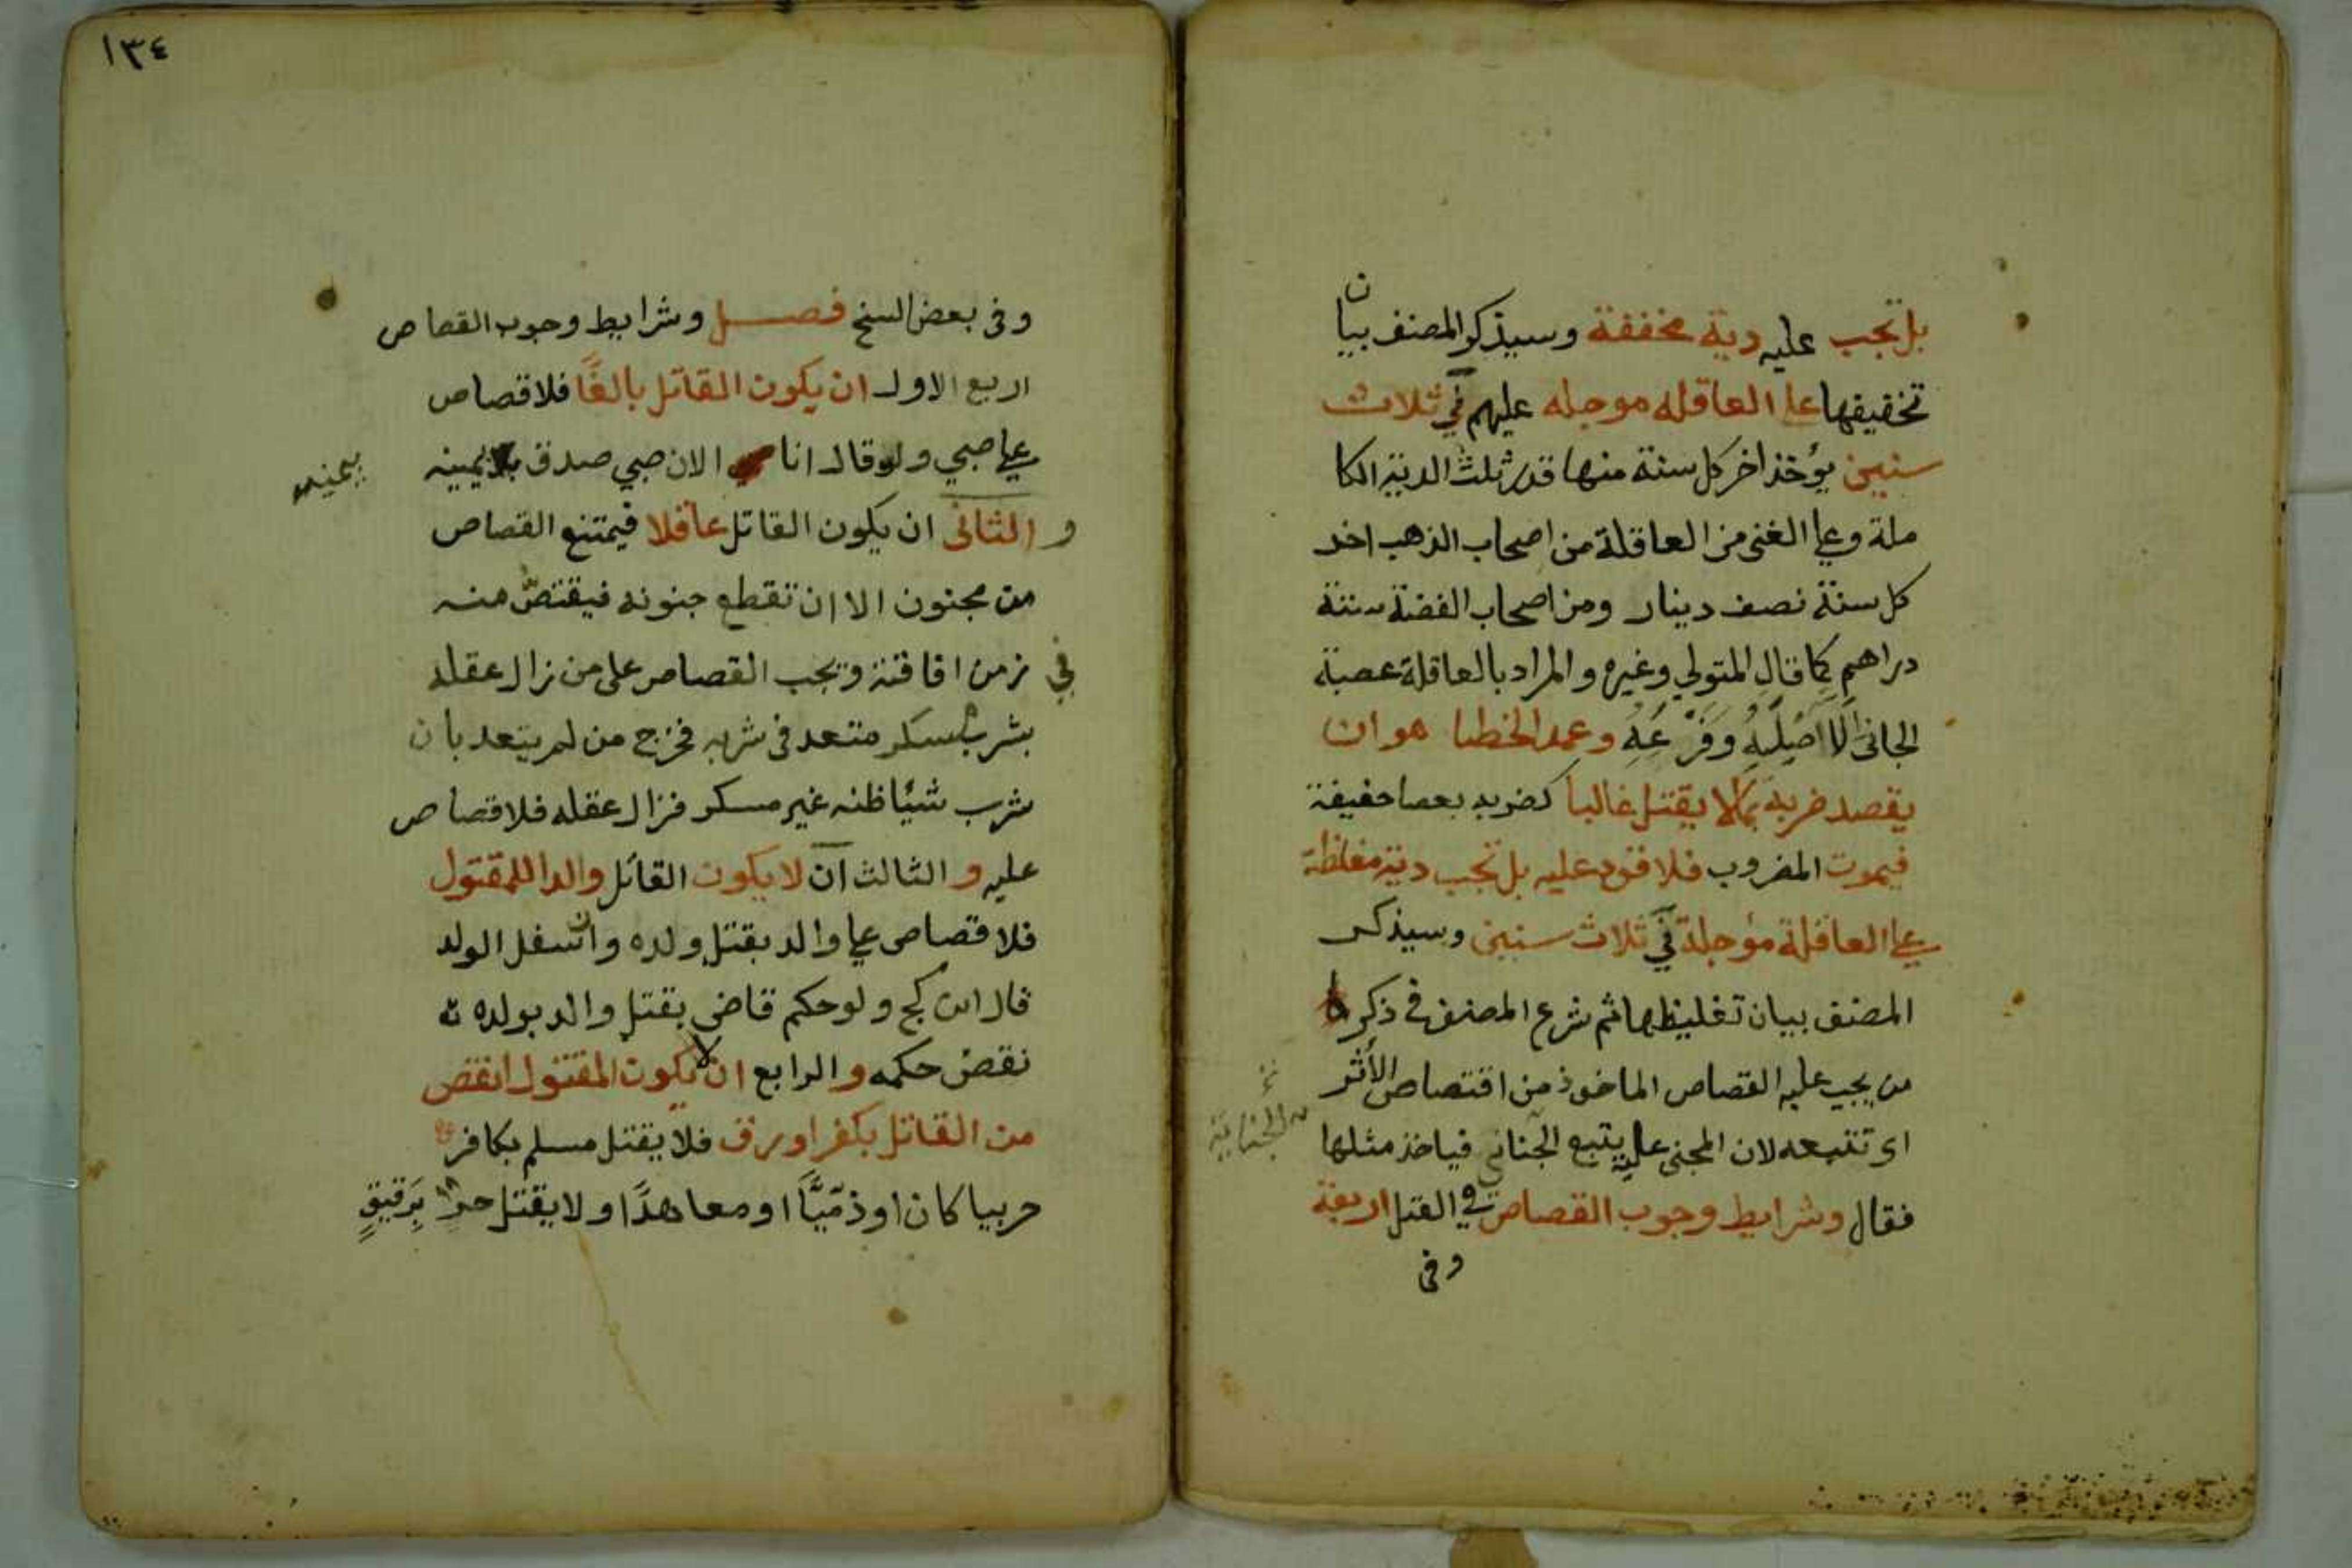 بل تجب عليه دية مخففة وسيذكر المصنف بيان
تخفيفها على العاقله موجله عليهم في ثلاث
سنين يؤخذ اخر كل سنة منها قدر ثلث الدية الكا
ملة وعلى الغنى من العاقلة من اصحاب الذهب اخر
كل سنة نصف دينار ومن اصحاب الفضة ستة
دراهم كما قال المتولي وغيره والمراد بالعاقلة عصبة
الجانى الا اصليه وفرعه وعمد الخطا هو ان
يقصد ضربه بما لا يقتل غالبا كضربه بعصا خفيفة
فيموت المضروب فلا قود عليه بل تجب دية مغلظة
على العاقلة مؤجلة في ثلاث سنين وسيذكر
المصنف بيان تغليظها ثم شرع المصنف في ذكر
من يجب عليه القصاص الماخوذ من اقتصاص الأثر
اى تتبعه لان المجنى عليه يتبع الجناني فياخذ مثلها
الجناية
فقال وشرايط وجوب القصاص في القتل اربعة
وفى
١٣٤
وفى بعض النسخ فصل وشرايط وجوب القصاص
اربع الاول ان يكون القاتل بالغًا فلا قصاص
على صبي ولو قال انا الان صبي صدق بلا يمينه
بيمينه
و الثانى ان يكون القاتل عاقلا فيمتنع القصاص
من مجنون الا ان تقطع جنونه فيقتصّ منه
في زمن افاقته ويجب القصاص على من زال عقله
بشرب مسكر متعد فى شربه فخرج من لم يتعد بان
شرب شيًا ظنه غير مسكر فزال عقله فلا قصاص
عليه و الثالث ان لا يكون القاتل والدا للمقتول
فلا قصاص على والد بقتل ولده وان سفل الولد
قال ابن كج ولو حكم قاضي بقتل والد بولده
نقض حكمه و الرابع ان لا يكون المقتول انقص
من القاتل بكفر او رق فلا يقتل مسلم بكافر
حربيا كان او ذمّيًّا او معاهدًا ولا يقتل حر برقيق